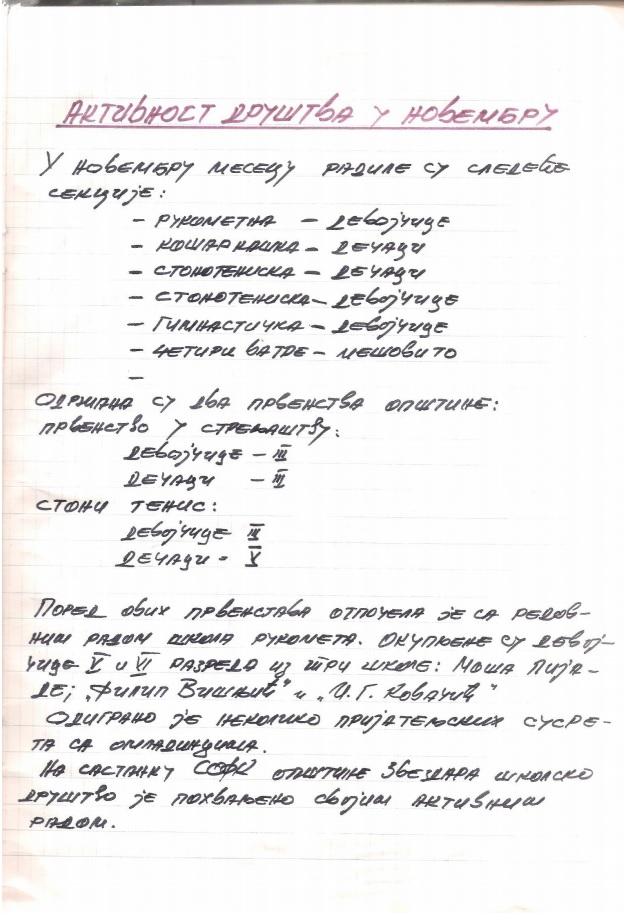 АКТИВНОСТ ДРУШТВА У НОВЕМБРУ
У НОВЕМБРУ МЕСЕЦУ РАДИЛЕ СУ СЛЕДЕЋЕ
СЕКЦИЈЕ:
– РУКОМЕТНА – ДЕВОЈЧИЦЕ
– КОШАРКАШКА – ДЕЧАЦИ
– СТОНОТЕНИСКА – ДЕЧАЦИ
– СТОНОТЕНИСКА – ДЕВОЈЧИЦЕ
– ГИМНАСТИЧКА – ДЕВОЈЧИЦЕ
– ЧЕТИРИ ВАТРЕ – МЕШОВИТО
–
ОДРЖАНА СУ ДВА ПРВЕНСТВА ОПШТИНЕ:
ПРВЕНСТВО У СТРЕЉАШТВУ:
ДЕВОЈЧИЦЕ – III
ДЕЧАЦИ – III
СТОНИ ТЕНИС:
ДЕВОЈЧИЦЕ III
ДЕЧАЦИ - V
ПОРЕД ОВИХ ПРВЕНСТАВА ОТПОЧЕЛА ЈЕ СА РЕДОВ-
НИМ РАДОМ ШКОЛА РУКОМЕТА. ОКУПЉЕНЕ СУ ДЕВОЈ-
ЧИЦЕ V И VI РАЗРЕДА ИЗ ТРИ ШКОЛЕ: МОША ПИЈА-
ДЕ; „ФИЛИП ВИШЊИЋ" И „И. Г. КОВАЧИЋ"
ОДИГРАНО ЈЕ НЕКОЛИКО ПРИЈАТЕЉСКИХ СУСРЕ-
ТА СА ОМЛАДИНЦИМА.
НА САСТАНКУ СОФК ОПШТИНЕ ЗВЕЗДАРА ШКОЛСКО
ДРУШТВО ЈЕ ПОХВАЉЕНО СВОЈИМ АКТИВНИМ
РАДОМ.